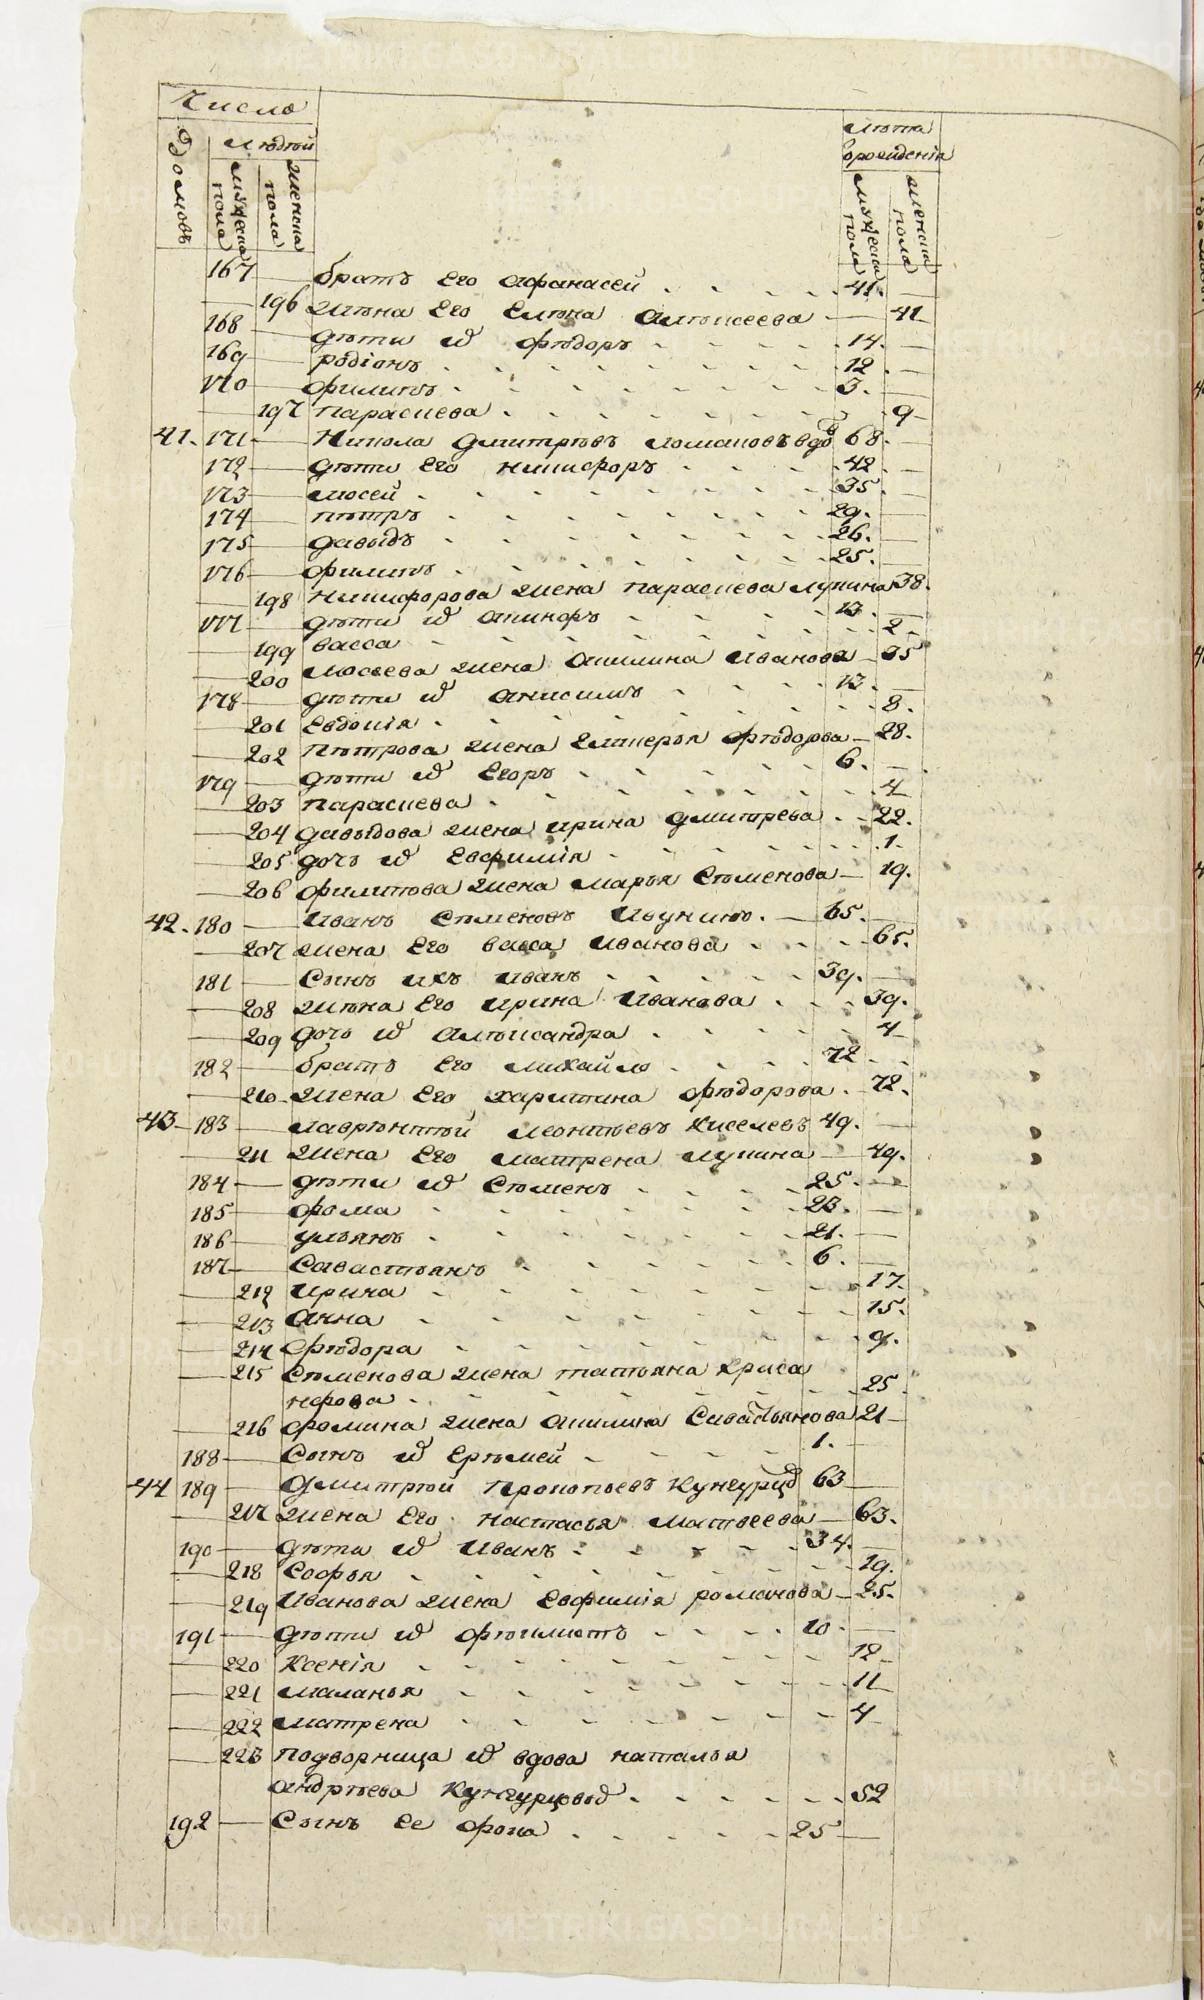 METRIKI.GASO-URAL.RU
Число
Домовъ
людей
мужеска пола
женска пола
лѣта
врождения
мужеска пола
женска пола
167 — братъ Его Афанасей 41. —
— 196 жена Его Елена Алексеева — 41
168 — дѣти их Федоръ 14. —
169 — родіонъ 12. —
170 — филипъ 3. —
— 197 парасиева 9
41. 171 — Никола дмитревъ ломановъ вдо 68. —
172 — дѣти Его никифоръ 42 —
173 — мосей 35. —
174 — петръ 29. —
175 — давыдъ 26. —
176 — филипъ 25. —
198 никифорова жена парасиева лупина 38.
177 — дѣти их анинфъ 13. —
199 васса 2.
200 мосеева жена акилина иванова — 35
178 — дѣти их анисимъ 13. —
— 201 Евдокія 8.
— 202 петрова жена катерья федорова — 28.
179 — дѣти их Егоръ 6. —
— 203 парасиева 4
— 204 давыдова жена ирина дмитрева 22.
— 205 дочь их Евфимія 1.
— 206 филипова жена марья семенова — 19.
42. 180 — Иванъ Семеновъ Икунинъ. — 65. —
— 207 жена Его васса иванова 65.
181 — Сынъ ихъ иванъ 39. —
— 208 жена Его ирина иванова 39.
— 209 дочь их александра 4
182 — братъ Его михайло 72
— 210 жена Его харитина федорова 72.
43 183 — лаврентей леонтьевъ киселевъ 49. —
— 211 жена Его матрена лупина — 49.
184 — дѣти их семенъ 25. —
185 — фома 23. —
186 — ульянъ 21. —
187 — Савастьянъ 6. —
— 212 ирина 17.
— 213 анна 15.
— 214 федора 9.
— 215 Семенова жена татьяна Криса
нфова 25
216 фомина жена акилина Савастьянова 21
188 — Сынъ их Еремей 1. —
44 189 — дмитрей прокопьевъ кунгурцов 63 —
— 217 жена Его настасья матвеева — 63.
190 — дѣти их иванъ 34. —
— 218 Софья 19.
— 219 иванова жена Евфимія романова — 25.
191 — дѣти их феклистъ 10. —
— 220 Ксенія 12
— 221 маланья 11
— 222 матрена 4
— 223 подворница их вдова наталья
андреева кунгурцовых 52
192 — Сынъ Ее фока 25 —
METRIKI.GASO-URAL.RU